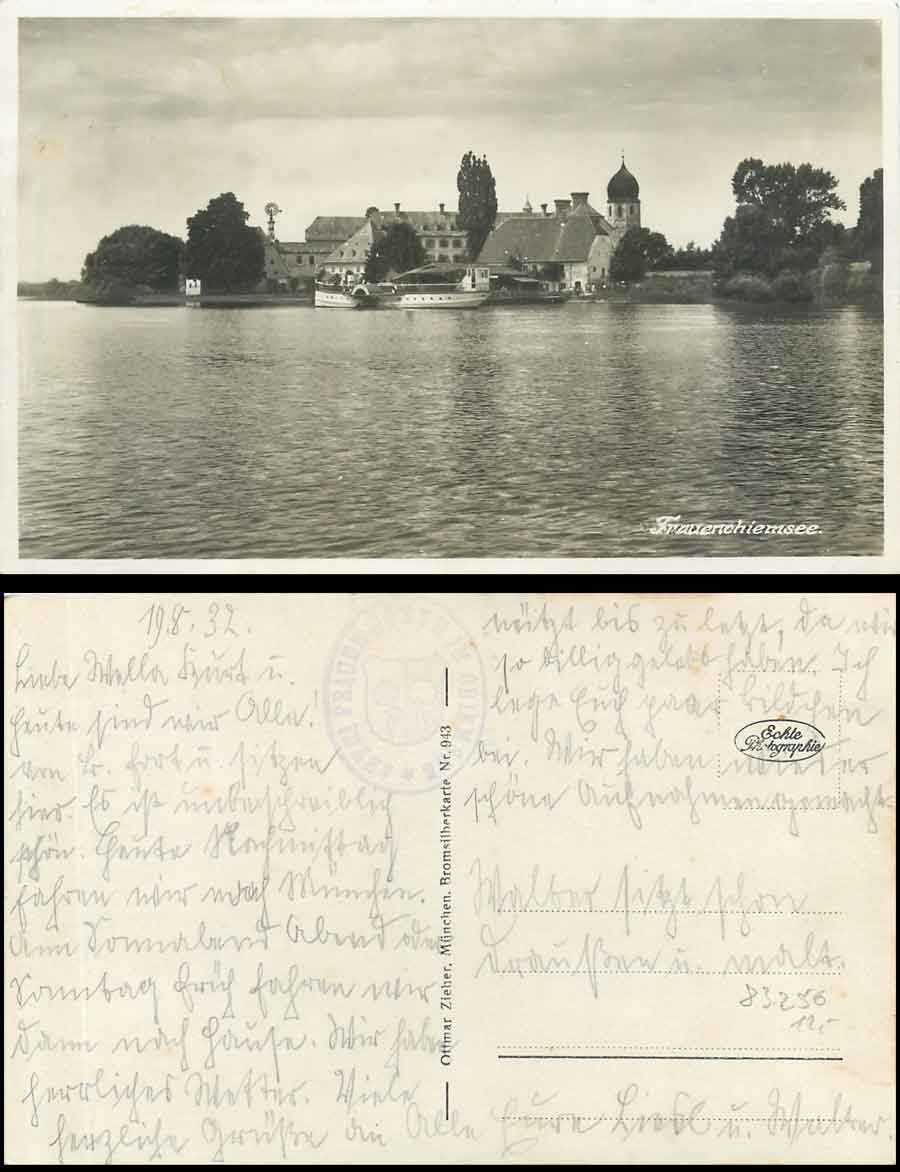 Frauenchiemsee.
19.8.32.
Liebe Wella Kurt u.
Alle!
heute sind wir
am fort u. sitzen
hier. Es ist unbeschreiblich
schön. Heute Nachmittag
fahren wir nach München.
Am Sonnabend Abend oder
Sonntag früh fahren wir
dann nach Hause. Wir haben
herrliches Wetter. Viele
herzliche Grüße an Alle
Ottmar Zieher, München. Bromsilberkarte Nr. 943
bis zu letzt, da wir
so billig gelebt haben. Ich
lege Euch paar Bildchen
bei. Wir haben wieder
schöne Aufnahmen gemacht.
Echte
Photographie
Walter sitzt schon
draußen u. malt.
83256
12,-
Eure Liesl u. Walter.